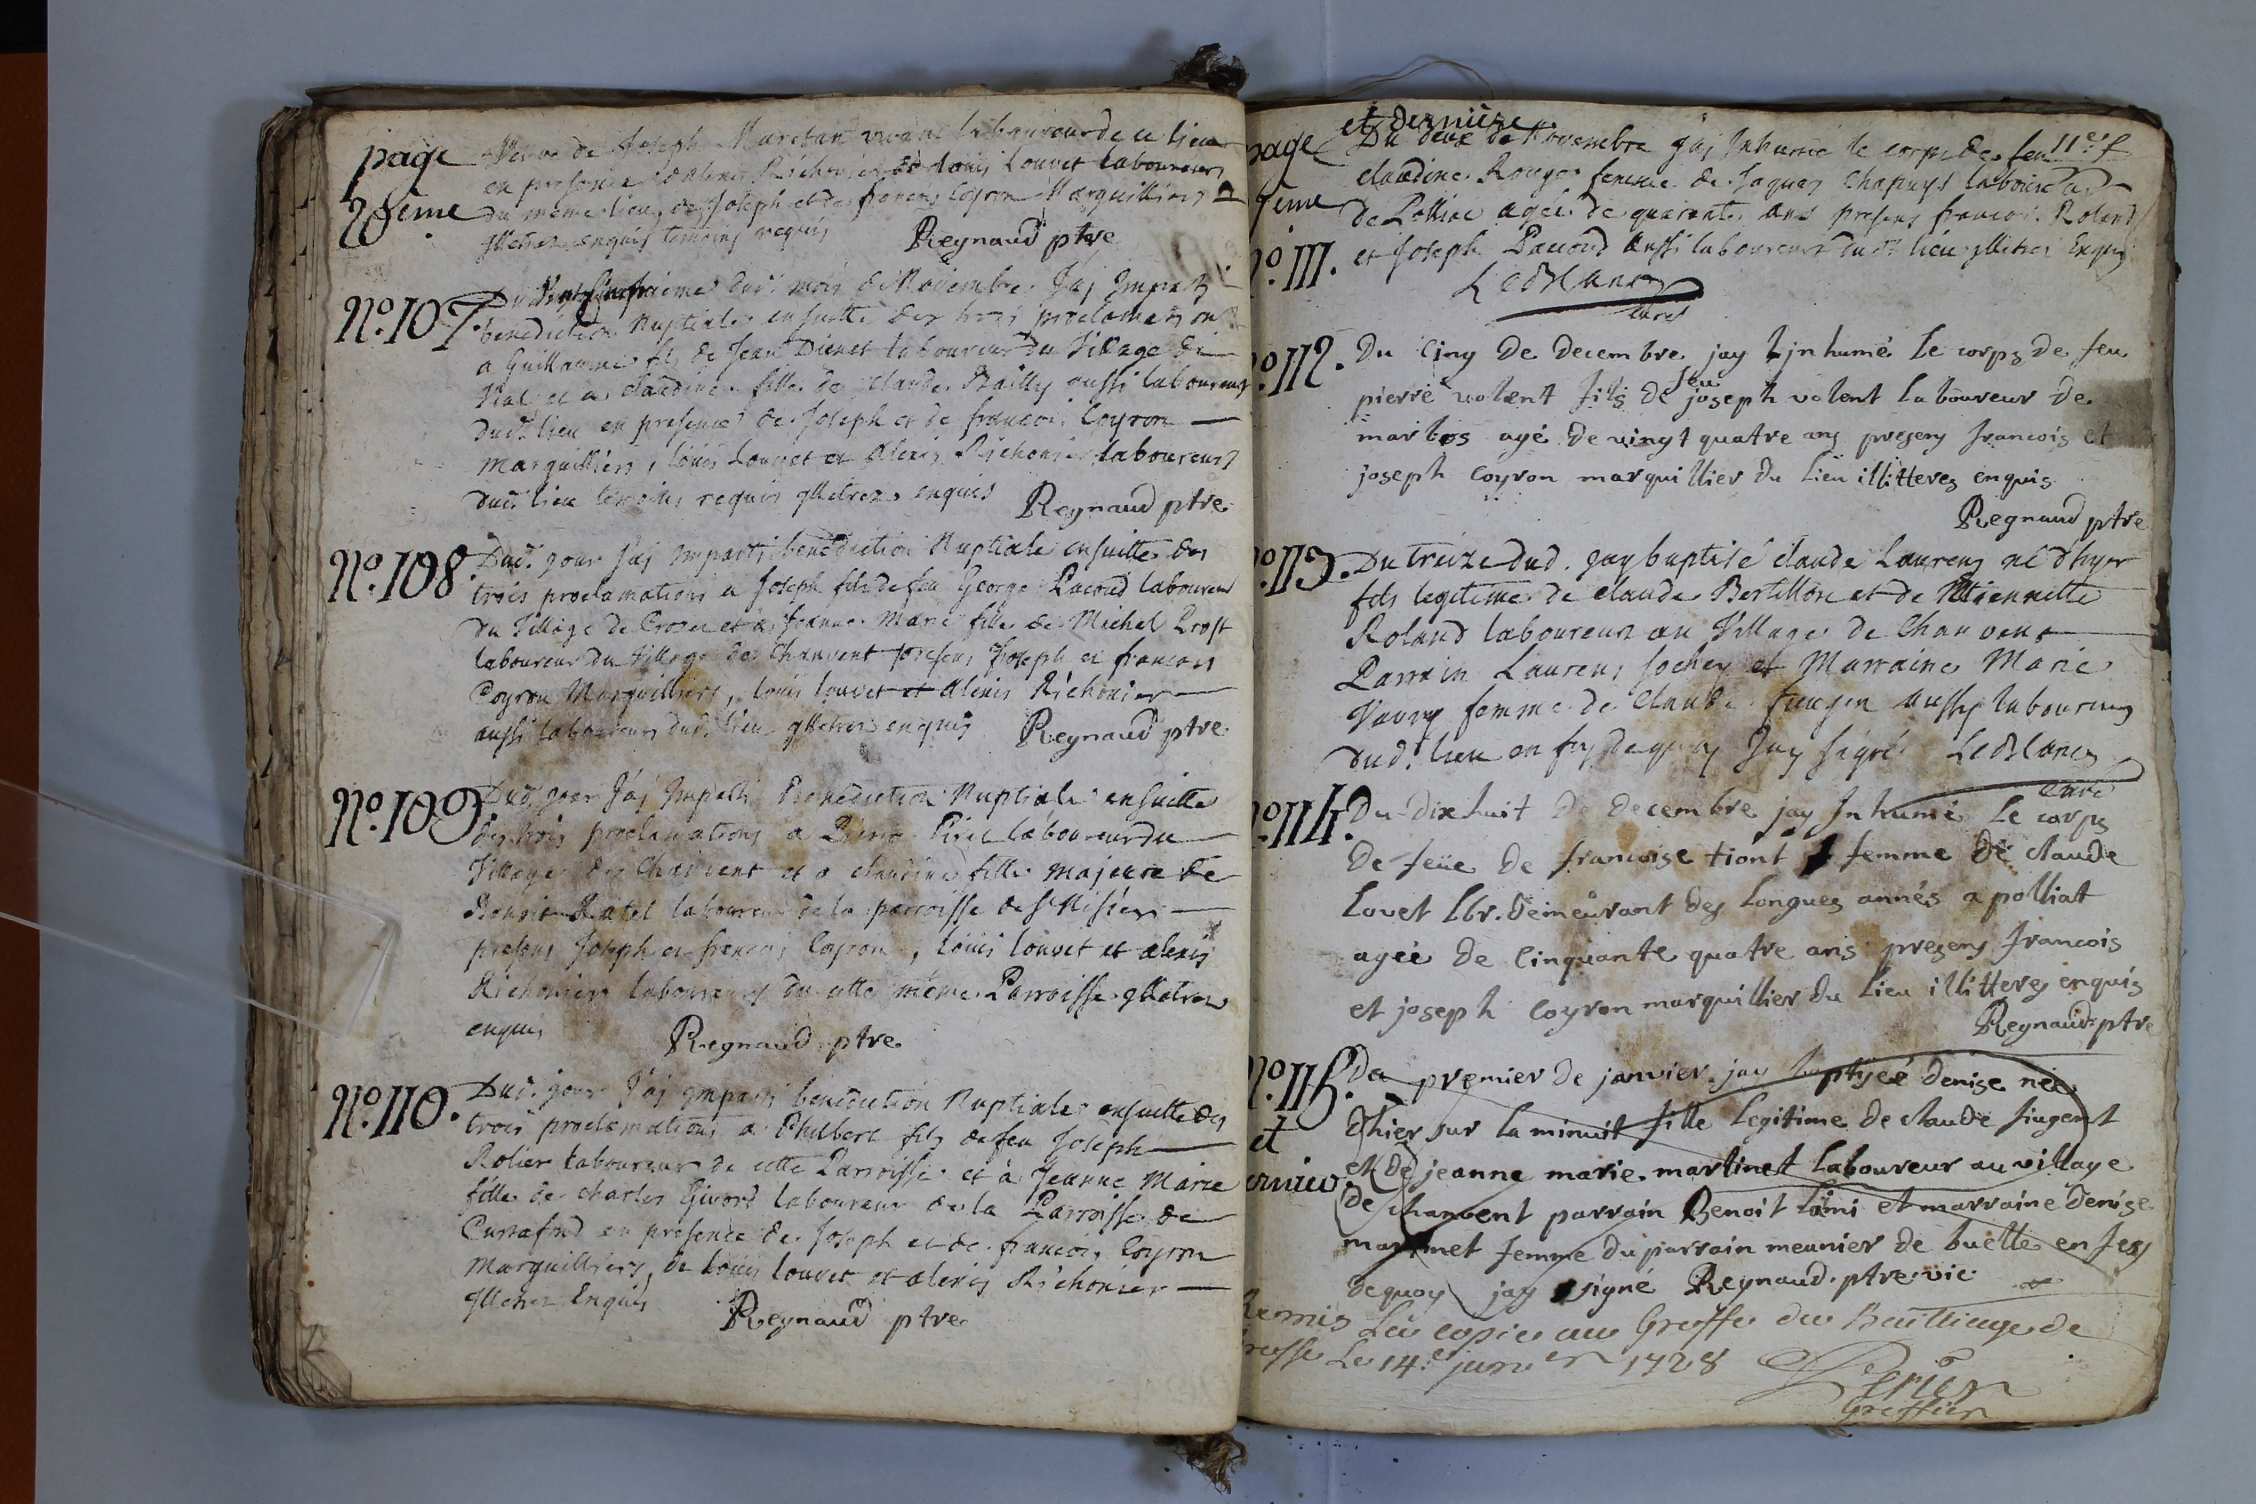 page
28eme
Veuve de Joseph Marctan vivant laboureur de ce lieu
en presence d'alexis Richonier et de louis Louvet laboureurs
du meme lieu, de Joseph et de francois Coyron Marguilliers
illetrez enquis temoins requis Reynaud ptre
No. 107.
Dud. mois de Novembre J'aj Imparti
benediction Nuptiale ensuitte des trois proclamations
a Guillaume fils de Jean Dienet laboureur du Village de
Vial et a claudine fille de claude Bailly aussi laboureur
dud. lieu en presence de Joseph et de francois Coyron
marguilliers, louis Louvet et Alexis Richonier laboureurs
dud. lieu temoins requis illetrez enquis Reynaud ptre
No. 108.
Dud. jour J'aj Imparti benediction Nuptiale ensuitte des
trois proclamations a Joseph fils de feu George Pacoud laboureur
du Village de Crozet et a Jeanne Marie fille de Michel Prost
laboureur du village de Chanvent presens Joseph et francois
Coyron Marguilliers, louis louvet et Alexis Richonier
aussi laboureurs dud. lieu illetrez enquis Reynaud ptre
No. 109.
Dud. jour J'aj Imparti Benediction Nuptiale ensuitte
des trois proclamations a Pierre laboureur du
Village de Chanvent et a claudine fille majeure de
Benoit Ratel laboureur de la parroisse de St
presens Joseph et francois Coyron, louis louvet et alexis
Richonier laboureurs de cette même Parroisse illetrez
enquis Reynaud ptre
No. 110.
Dud. jour J'aj imparti benediction Nuptiale ensuitte des
trois proclamations a Philbert fils de feu Joseph
Rolier laboureur de cette Parroisse et à Jeanne Marie
fille de charles Givord laboureur de la Parroisse de
Curtafond en presence de Joseph et de francois Coyron
marguilliers, de louis louvet et alexis Richonier
illetrez Enquis Reynaud ptre
page
et derniere
Du deux de Novembre j'aj Inhumé le corps de feu 11er f
claudine Rouge femme de Jaques Chapuys laboureur
de Polliac agée de quarante ans presens francois Roland
No 111. et Joseph Pacoud aussi laboureurs dud. lieu illitres Enquis
LeBlanc
curé
No 112.
Du cinq de decembre jay injhumé le corps de feu
pierre volent fils de feu joseph volent laboureur de
marbos agé de vingt quatre ans prezens francois et
joseph coyron marguillier du lieu illitteres enquis
Reynaud ptre
No 113.
Du treize dud. jay baptisé claude Laurens né d'hyer
fils legitime de claude Bertillon et de Etiennette
Roland laboureur au Village de Chanvent
Parrain Laurens Jochey et Marraine Marie
Vavry femme de Claude fingen aussy laboureur
dud. lieu en foy de quoy Jay signé LeBlanc
curé
No 114.
Du dix huit de decembre jay Inhumé le corps
de feüe de francoise tiont femme de claude
Lovet lbr. demeurant des longues annés a polliat
agée de cinquante quatre ans prezens francois
et joseph coyron marguillier du lieu illitteres enquis
Reynaud ptre
No 115.
et
dernier
du premier de janvier jay baptyzé denize née
dhier sur la minuit fille legitime de claude fingent
et de jeanne marie martinet laboureur au village
de chanvent parrain Benoit lami et marraine denize
martinet femme du parrain meunier de buelle en foy
de quoy jay signé Reynaud ptre vic
Remis La copie au Greffe du Bailliage de
Bresse Le 14e janvier 1728
Perier
Greffier